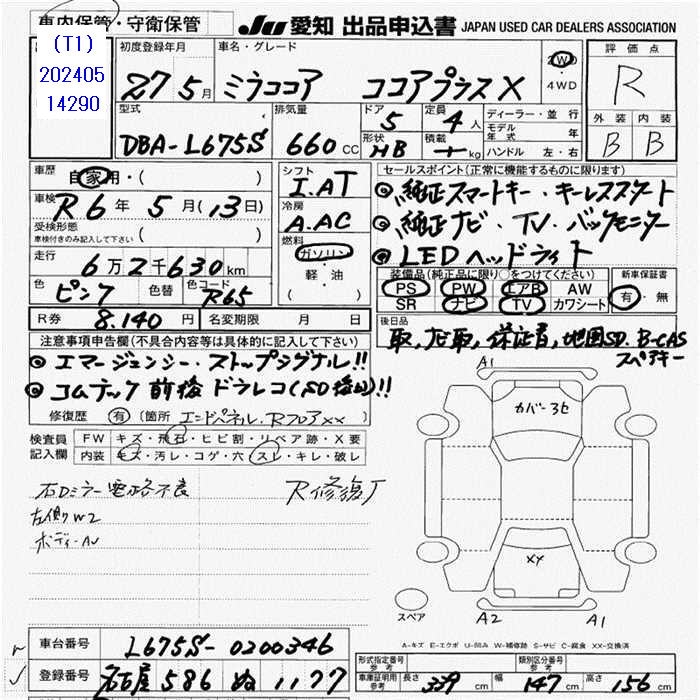 車内保管・守衛保管
JU 愛知 出品申込書 JAPAN USED CAR DEALERS ASSOCIATION
(T1)
202405
14290
初度登録年月 27 5月
車名・グレード ミラココア ココアプラスX
2WD
・4WD
評価点
R
外装 内装
B B
型式 DBA-L675S
排気量 660 cc
ドア 5
形状 HB
定員 4人
積載 kg
ディーラー・並行
モデル年式 年
ハンドル 左・右
車歴 自家用・( )
車検 R6年 5月(13日)
受検形態
車検付きのみ記入して下さい ( )
走行 6万2千630km
色 ピンク
色替
色コード R65
R券 8,140円
名変期限 月 日
シフト I.AT
冷房 A.AC
燃料 ガソリン
・軽・油
( )
セールスポイント(正常に機能するものに限ります)
◎純正スマートキー・キーレススタート
◎純正ナビ・TV・バックモニター
◎LEDヘッドライト
装備品(純正品に限り○をつけてください)
PS PW エアB AW
SR ナビ TV カワシート
新車保証書
有・無
後日品
取,ナビ取,保証書,地図SD.B-CAS
スペアキー
注意事項申告欄(不具合内容等は具体的に記入して下さい)
◎エマージェンシー・ストップシグナル!!
◎コムテック前後ドラレコ(SD後日)!!
修復歴 有 (箇所 エンドパネル・Rフロアxx)
検査員記入欄
FW キズ・飛石・ヒビ割・リペア跡・X要
内装 キズ・汚レ・コゲ・穴・スレ・キレ・破レ
右Dミラー電格不良
R修復歴
左側W2
ボディーAU
A1
カバー3ヒ
XX
スペア
A2
A1
A-キズ E-エクボ U-凹み W-補修跡 S-サビ C-腐食 XX-交換済
車台番号 L675S-0200346
登録番号 名古屋 586 ぬ 1177
形式指定番号
参考
類別区分番号
参考
車庫証明用
参考
長さ 339cm 幅 147cm 高さ 156cm